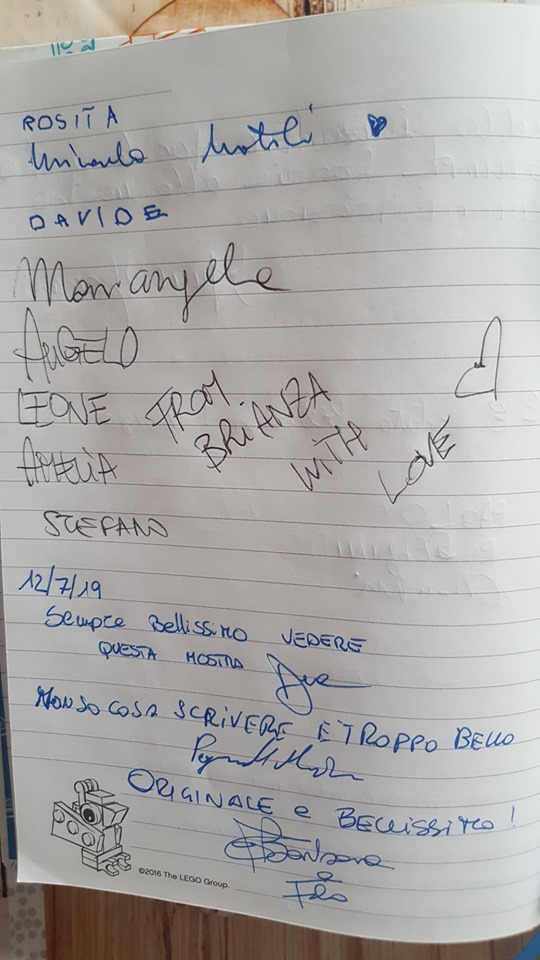 ROSITA
DAVIDE
Mariangela
ANGELO
LEONE
FROM BRIANZA WITH LOVE
AMELIA
STEFANO
12/7/19
Sempre Bellissimo VEDERE
QUESTA MOSTRA
NON SO COSA SCRIVERE E TROPPO BELLO
ORIGINALE e BELLISSIMO!
Barbara
e
©2016 The LEGO Group.